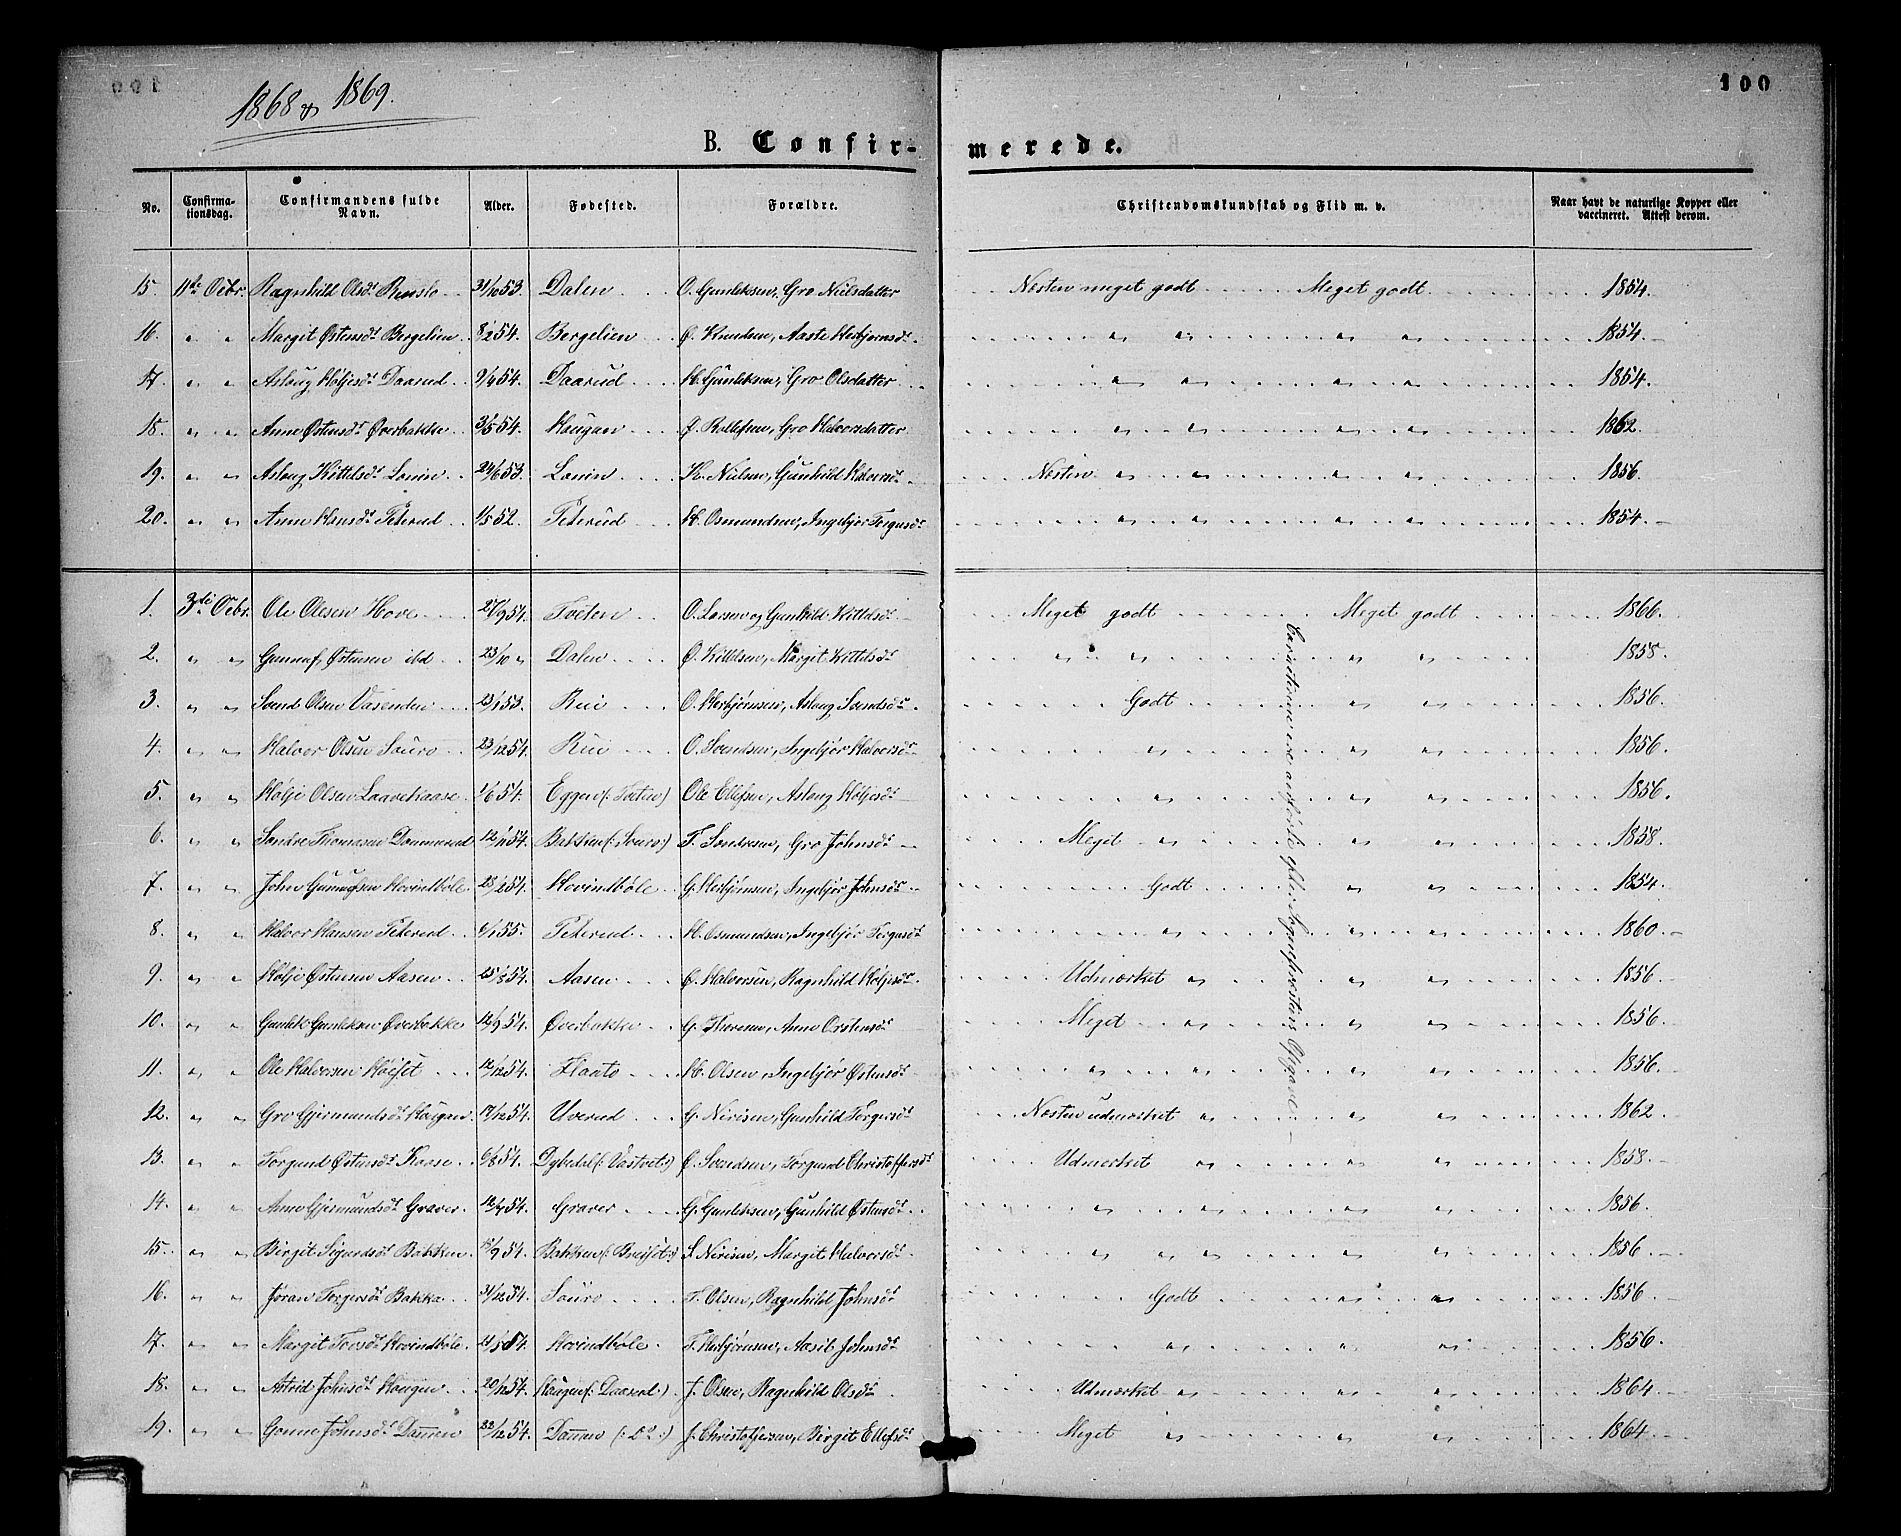 1868 & 1869.
100
B. Confirmerede.
No. Confirmationsdag. Confirmandens fulde Navn. Alder. Fødested. Forældre. Christendomskundskab og Flid m. v. Naar havt de naturlige Kopper eller vaccineret. Attest derom.
15. 11te Octbr. Ragnhild Olsdr 31/10 53. Dalen O. Gunleksen, Gro Nielsdatter Næsten meget godt Meget godt 1854.
16. " " Margit Østensdr Bergelien 8/2 54. Bergelien Ø. Knudsen, Aaste Herbjørnsdr " " " " 1854.
17. " " Aslaug Høljesdr Daarud 9/4 54. Daarud H. Gunleksen, Gro Olsdatter " " " " 1854.
18. " " Anne Østensdr Øverbakke 3/5 54. Haugan Ø. Rollefsen, Gro Halvorsdatter " " " " 1862.
19. " " Aslaug Kittelsdr Lonin 24/6 53. Lonin K. Nielsen, Gunhild Halvorsdr Næsten " " " " 1856.
20. " " Anne Hansdr Peterud 1/5 52. Peterud H. Osmundsen, Ingebjør Tergusdr " " " " 1854.
1. 3die Octbr. Ole Olesen Hove 27/9 54. Tveten O. Larsen og Gunhild Kittelsdr Meget godt Meget godt 1866.
2. " " Gunnuf Østensen ibd 23/10 " Dalen Ø. Kittelsen, Margit Kittelsdr " " " " 1858.
3. " " Svend Olsen Vasenden 23/1 53. Rui O. Herbjørnsen, Aslaug Svendsdr Godt " " 1856.
4. " " Halvor Olsen Sauro 23/12 54. Rui O. Svendsen, Ingebjør Halvorsdr " " " 1856.
5. " " Hølje Olsen Laavekaase 1/6 54. Eggen (: Tveten) Ole Ellefsen, Aslaug Høljesdr " " " 1856.
6. " " Sondre Thomasen 12/11 54. Bakken (: Sauro:) T. Sondresen, Gro Johnsdr Meget " " " 1858.
7. " " John Gunnufsen Hovindbøle. 28/2 54. Hovindbøle G. Herbjørnsen, Ingebjør Johnsdr Godt " " 1854.
8. " " Halvor Hansen Peterud 6/1 55. Peterud H. Osmundsen, Ingebjør Tergusdr " " " 1860.
9. " " Hølje Østensen Aasen 25/8 54. Aasen Ø. Halvorsen, Ragnhild Høljesdr Udmærket " " " 1856.
10. " " Gunlek Gunleksen Øverbakke 12/9 54. Øverbakke G. Thoresen, Anne Orstensdr Meget " " " 1856.
11. " " Ole Halvorsen Høiset 12/12 54. Flaato H. Olsen, Ingebjør Østensdr " " " " 1856.
12. " " Gro Gjermundsdr Haugan. 17/12 54. Uverud G. Nirisen, Gunhild Torgersdr Næsten udmærket " " " 1862.
13. " " Torgund Østensdr Kaase 6/8 54. Dybedal (: Vastvet:) Ø. Svendsen, Torgund Christoffersdr Udmærket " " " 1858.
14. " " Anne Gjermundsdr Graver. 12/4 54. Graver G. Gunleksen, Gunhild Østensdr " " " " 1856.
15. " " Birgit Sigurdsdr Bakken Bakken (: Breiset:) S. Nirisen, Margit Halvorsdr " " " " 1856.
16. " " Jøran Torgersdr Bakka 31/12 54. Sauro T. Olsen, Ragnhild Johnsdr Godt " " 1856.
17. " " Margit Tovsdr Hovindbøle. Hovindbøle. T. Herbjørnsen, Aasil Johnsdr " " " 1856.
18. " " Astrid Johnsdr Haugen 20/12 54. Haugen (: Daaset:) J. Olsen, Ragnhild Olsdr Udmærket " " " 1864.
19. " " Gonne Johnsdr Dammen 22/12 54. Dammen (: Do:) J. Christophersen, Birgit Ellefsdr Meget " " " 1864.
Caractererne ere anførte efter Sognepræstens Opgave